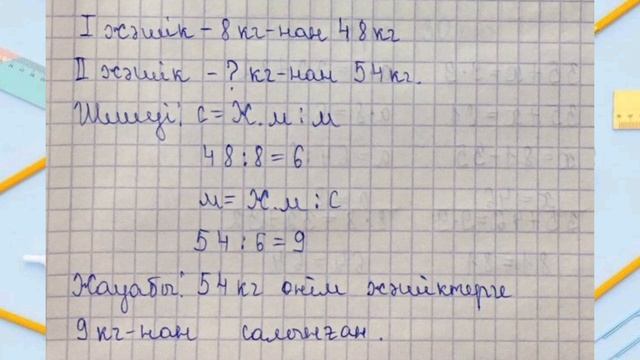 I жәшік – 8 кг-нан 48 кг
II жәшік – ? кг-нан 54 кг.
Шешуі: с = Ж.м : м
48 : 8 = 6
м = Ж.м : с
54 : 6 = 9
Жауабы: 54 кг өнім жәшіктерге
9 кг-нан салынған.